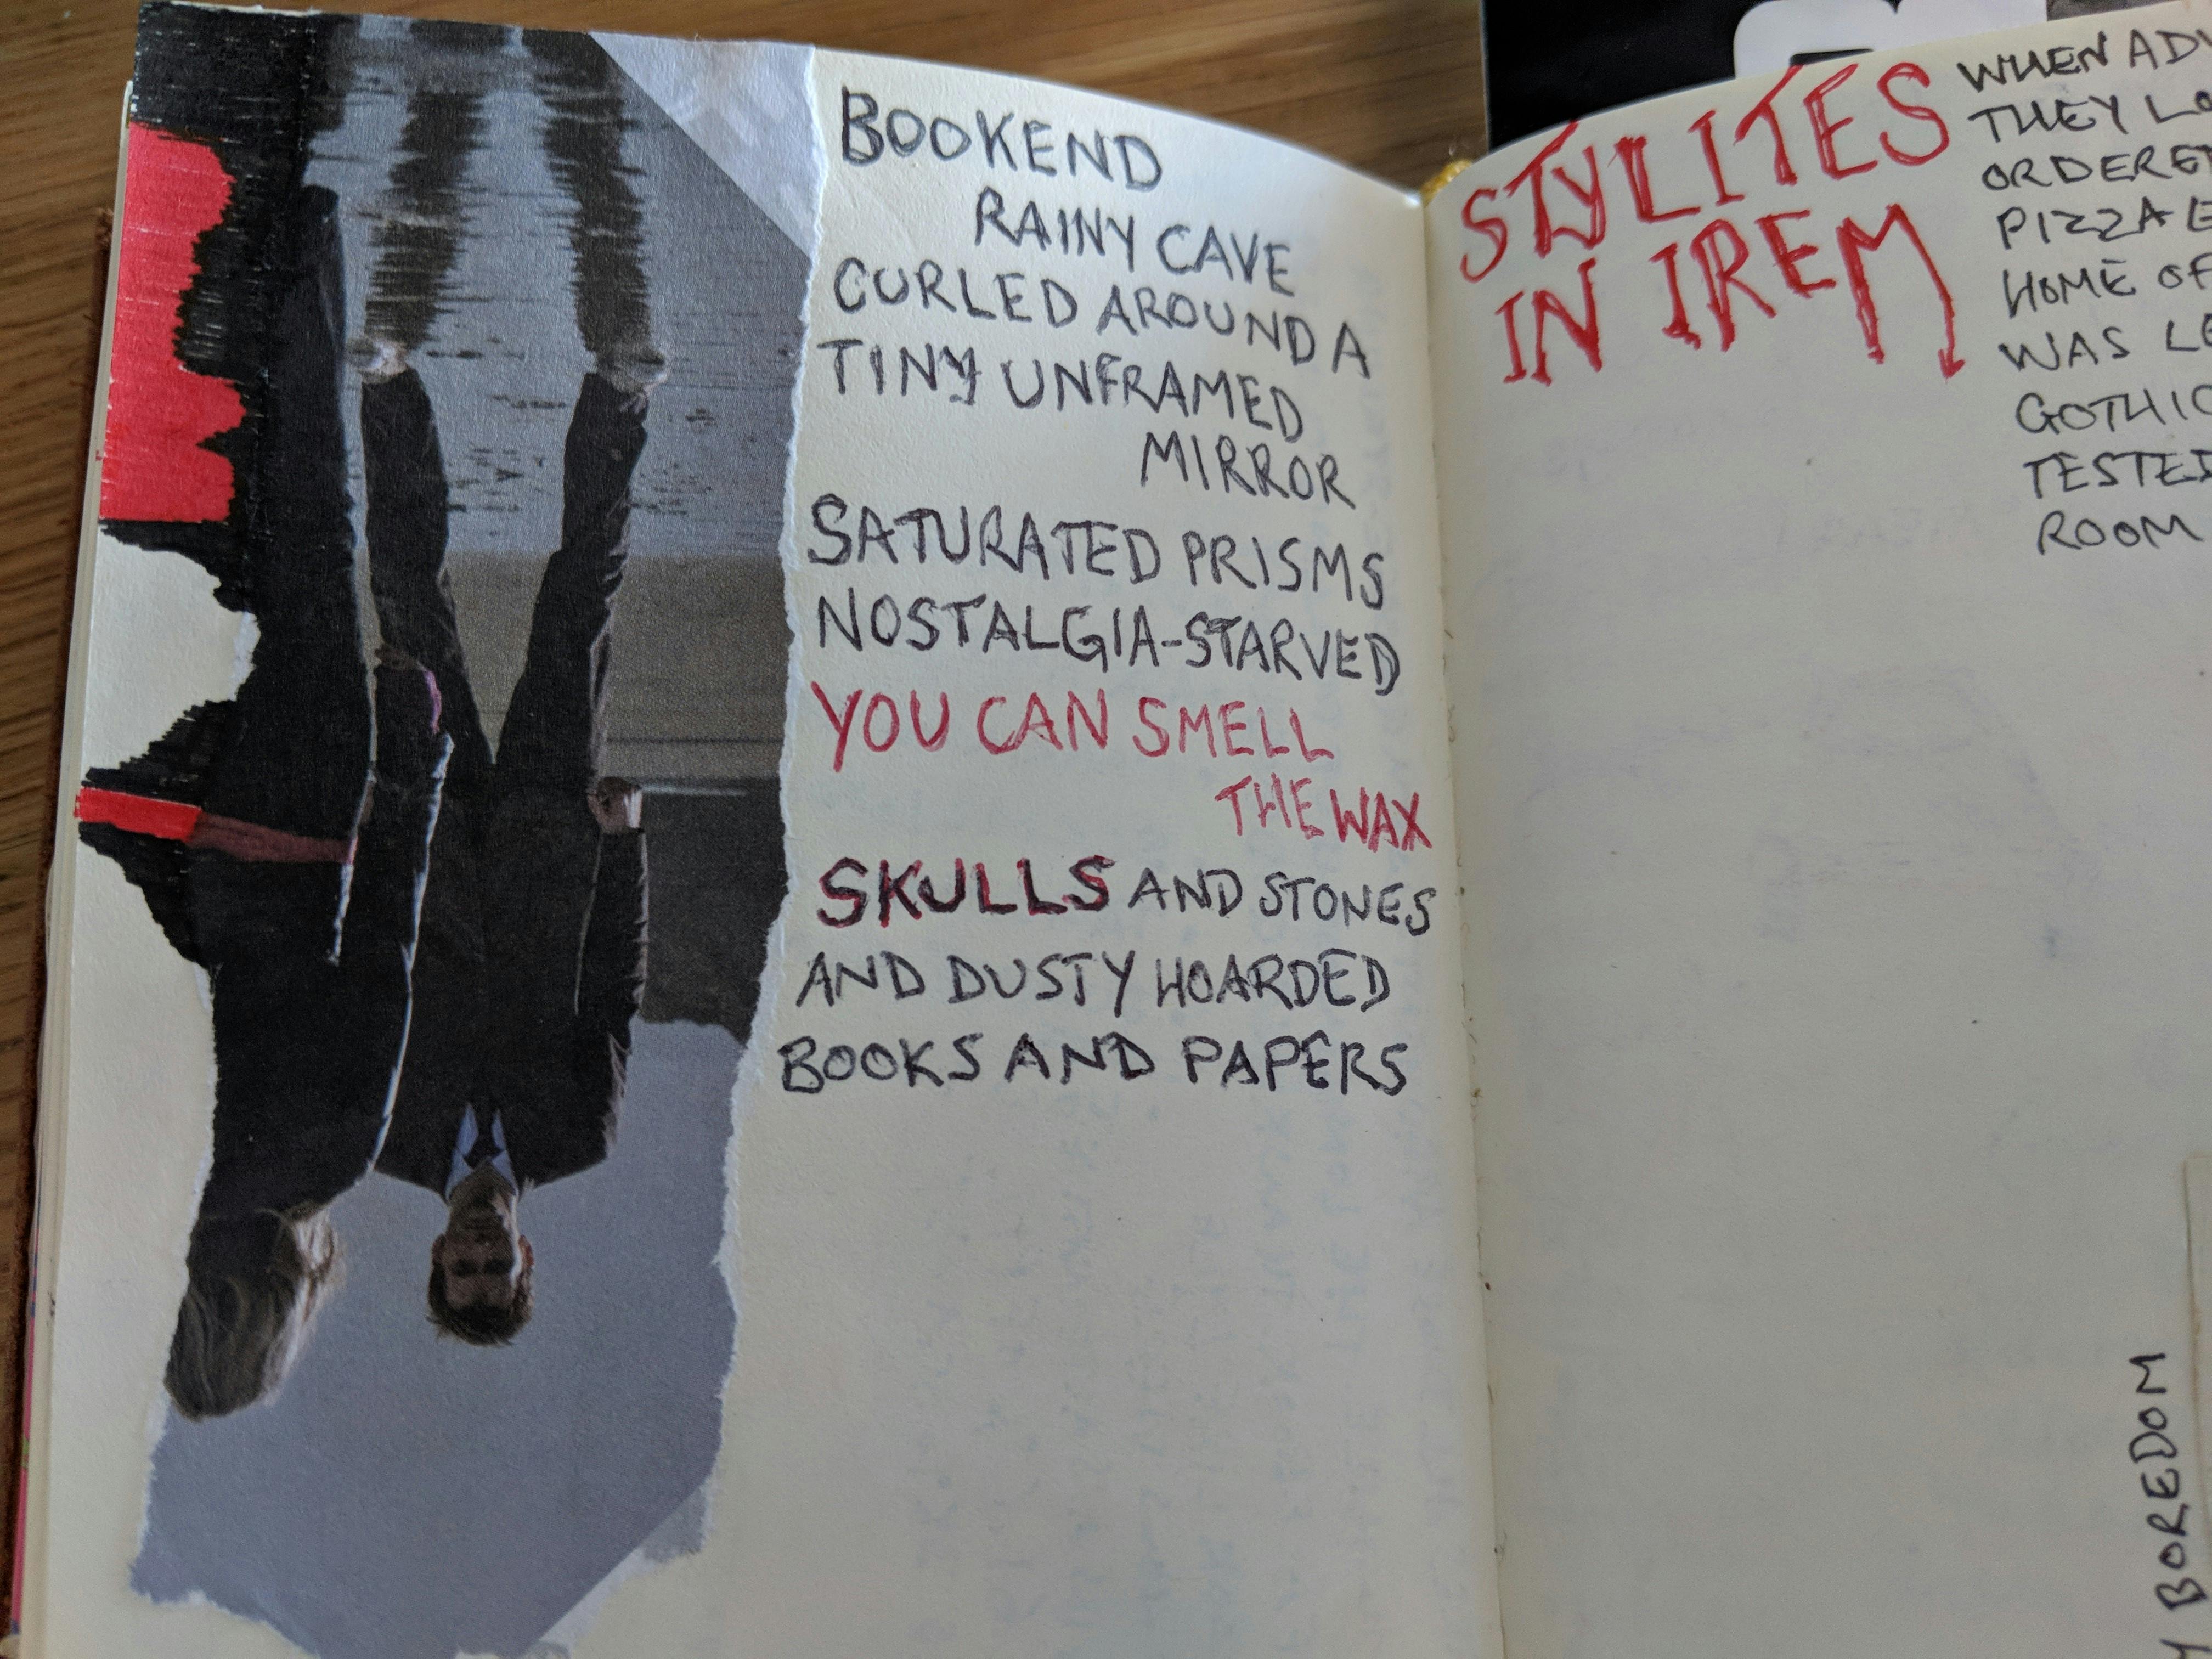 BOOKEND
RAINY CAVE
CURLED AROUND A
TINY UNFRAMED
MIRROR
SATURATED PRISMS
NOSTALGIA-STARVED
YOU CAN SMELL
THE WAX
SKULLS AND STONES
AND DUSTY HOARDED
BOOKS AND PAPERS
STYLITES
IN IREM
WHEN
THEY
ORDERE
PIZZA
HOME OF
WAS
GOTHIC
TESTED
ROOM
BOREDOM